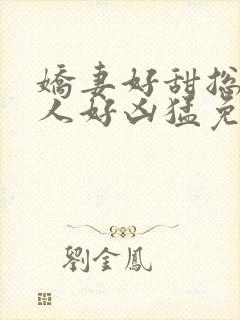 嬌妻好甜揔
人好凶猛免
劉金鳳